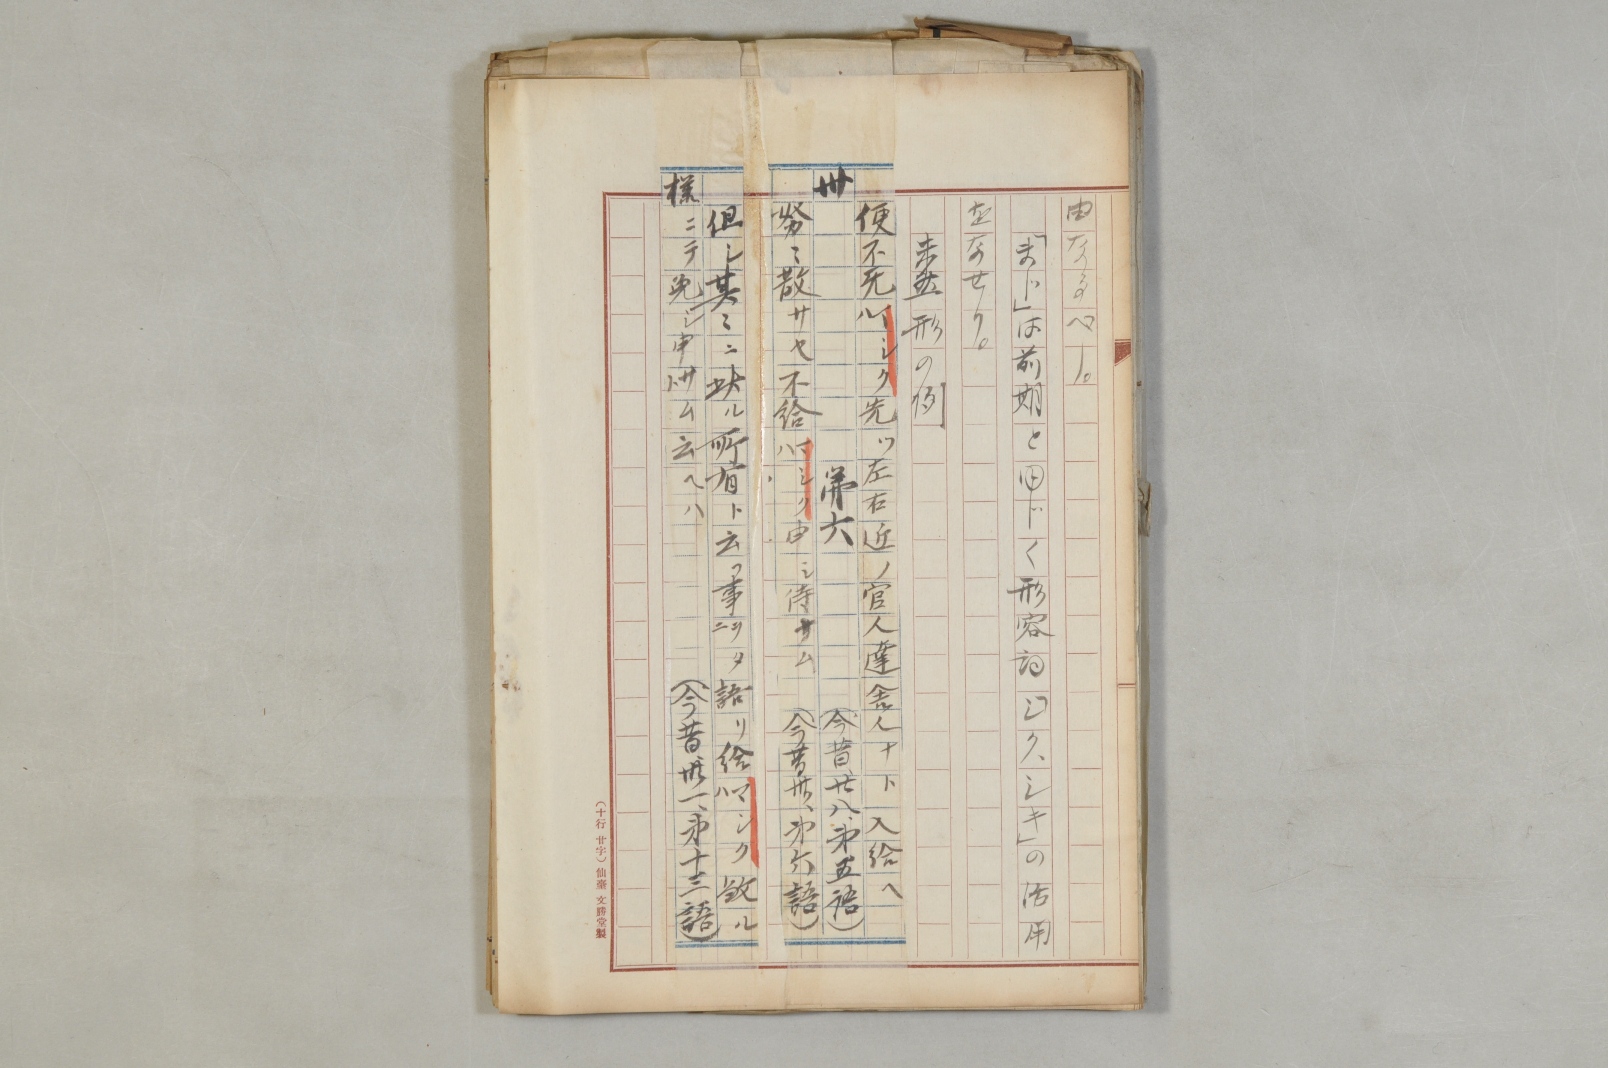 由なるべし。
「まじ」は前期と同じく形容詞「シク、シキ」の活用
をなせり。
未然形の例
便不死ハマシク先ツ左右近ノ官人達舎人ナト入給ヘ
卅　第六　（今昔廿八、第五語）
努〻散サセ不給ハマシク申シ侍サム　（今昔卅、第六語）
但シ其〻ニ缺ル所有ト云フ事ニヲタ語リ給ハマシク欲ル
様ニテ兔シ申サムト云ヘハ　（今昔卅一、第十三語）
（十行 廿字）仙臺 文勝堂製